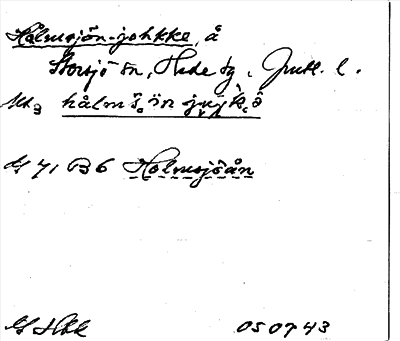 Holmsjön-johkke, å
Storsjö sn, Hede tg, Jmtl. l.
hålm š. ön jųi̯k̀.ê
GS 71 B6 Holmsjöån
050743